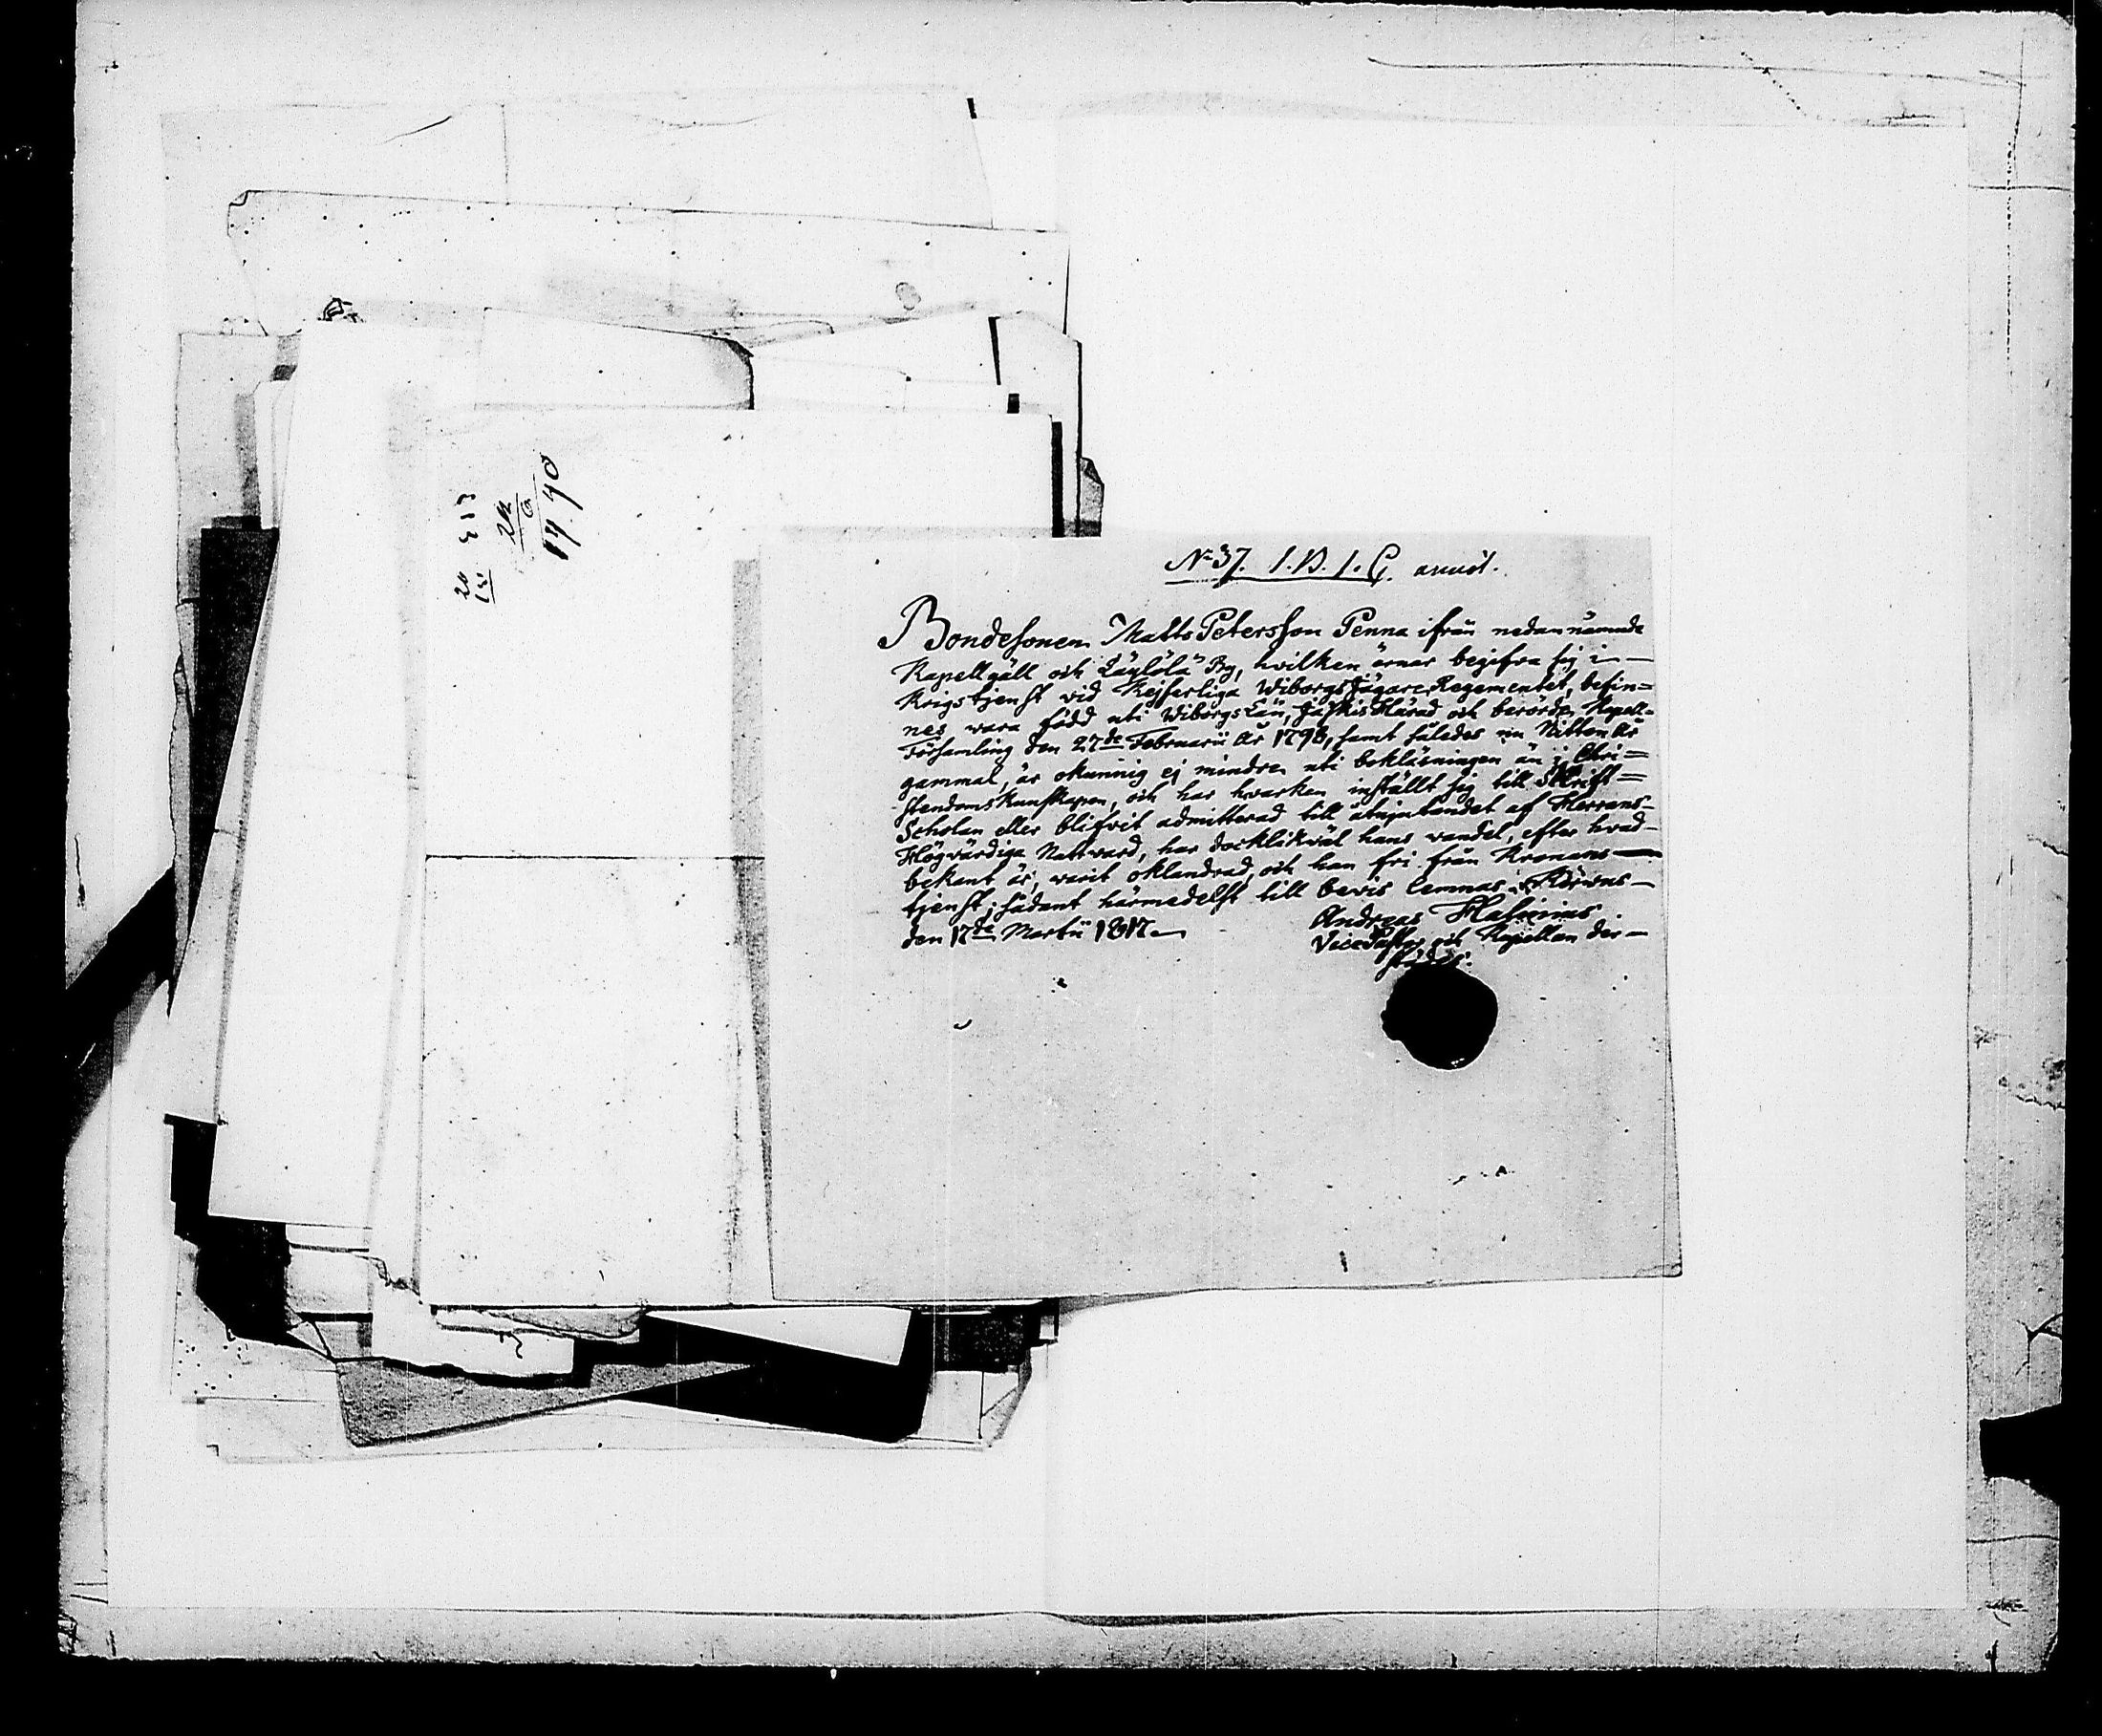 20 333
13
24
6
17.90
No 37. I. B. I. G. annöt.
Bondesonen Matts Petersson Penna ifrån nedannämnde
Kapellgäll och Läylölä By, hvilken ärnar begifva sig i
Krigstjenst vid Kejserliga Wiborgs Jägare Regementet, befin=
nes wara född uti Wiborgs Län, Jäskis Härad och berörde Kapell=
Församling den 27de Februarii År 1798, samt således nu Nitton År
gammal, är okunnig ej mindre uti bokläsningen än i Chri=
stendomskunskapen, och har hvarken inställt sig till Skrift=
Scholan eller blifvit admitterad till åtnjutandet af Herrans
Högvärdiga Nattvard, har docklikväl hans vandel, efter hvad
bekant är, varit oklandrad, och han fri från Kronans
tjenst; sådant härmedelst till bevis lemnas i Kirwus
den 17de Martii 1817.
Andreas
Vice Pastor och Kapellan der-
städes.